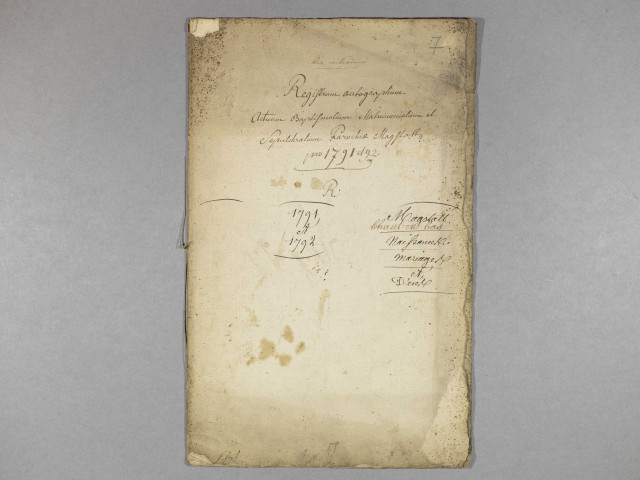 7
Registrum autographum
Actuum Baptismalium Matrimonialium et
Sepulchralium Parochiæ Magstatt
pro 1791 et 92
R.
1791,
et
1792
Magstatt
Naissances
Mariages,
et,
Décès